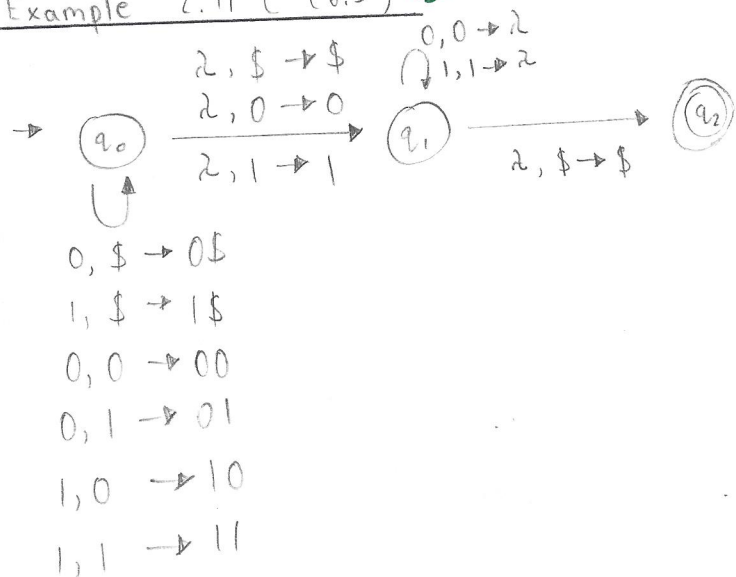 Example 2.11
0, 0 → λ
1, 1 → λ
λ, $ → $
λ, 0 → 0
λ, 1 → 1
q₀
q₁
q₂
λ, $ → $
0, $ → 0$
1, $ → 1$
0, 0 → 00
0, 1 → 01
1, 0 → 10
1, 1 → 11